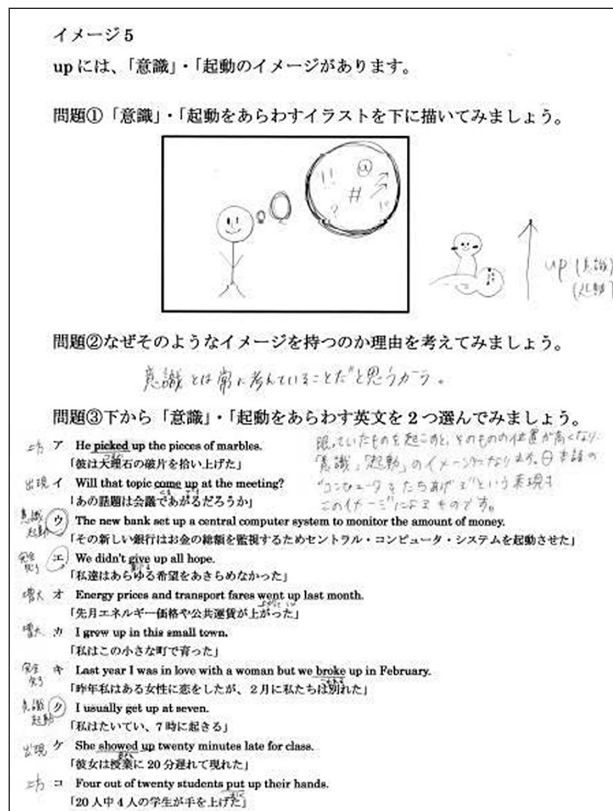 イメージ5
upには、「意識」・「起動のイメージがあります。
問題①「意識」・「起動をあらわすイラストを下に描いてみましょう。
!! @ #
?
up (意識)
(起動)
問題②なぜそのようなイメージを持つのか理由を考えてみましょう。
意識とは常に考えていることだと思うから。
問題③下から「意識」・「起動をあらわす英文を2つ選んでみましょう。
眠っていたものを起こすと、そのものの位置が高くなり
「意識」「起動」のイメージになります。日本語の
"コンピュータをたちあげる"という表現も
このイメージによるものです。
上方 ア He picked up the pieces of marbles.
「彼は大理石の破片を拾い上げた」
出現 イ Will that topic come up at the meeting?
「あの話題は会議であがるだろうか」
意識 起動 ウ The new bank set up a central computer system to monitor the amount of money.
「その新しい銀行はお金の総額を監視するためセントラル・コンピュータ・システムを起動させた」
完全 エ We didn't give up all hope.
「私達はあらゆる希望をあきらめなかった」
増大 オ Energy prices and transport fares went up last month.
「先月エネルギー価格や公共運賃が上がった」
増大 カ I grew up in this small town.
「私はこの小さな町で育った」
完全 キ Last year I was in love with a woman but we broke up in February.
「昨年私はある女性に恋をしたが、2月に私たちは別れた」
意識 起動 ク I usually get up at seven.
「私はたいてい、7時に起きる」
出現 ケ She showed up twenty minutes late for class.
「彼女は授業に20分遅れて現れた」
上方 コ Four out of twenty students put up their hands.
「20人中4人の学生が手を上げた」